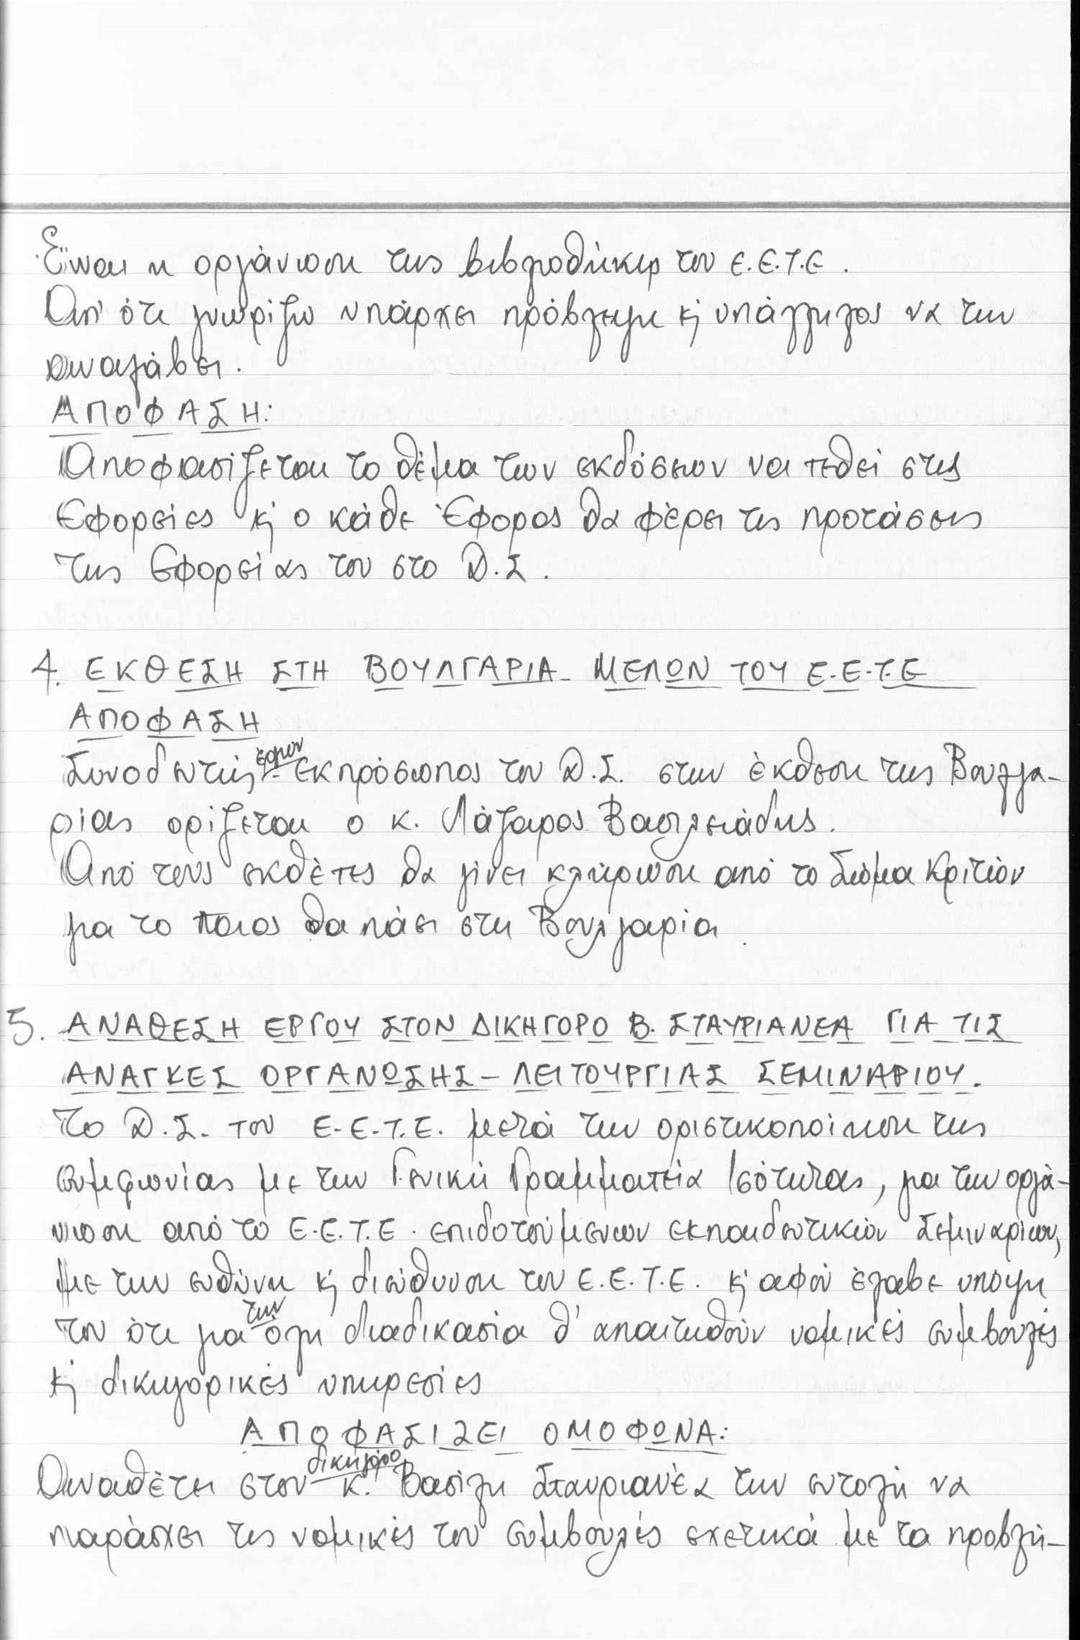 Είναι η οργάνωση της βιβλιοθήκης του Ε.Ε.Τ.Ε.
Απ' ότι γνωρίζω υπάρχει πρόβλημα κ' υπάλληλος να την
αναλάβει.
ΑΠΟΦΑΣΗ:
Αποφασίζεται το θέμα των εκδόσεων να τεθεί στις
Εφορείες κ' ο κάθε Έφορος θα φέρει τις προτάσεις
της Εφορείας του στο Δ.Σ.
4. ΕΚΘΕΣΗ ΣΤΗ ΒΟΥΛΓΑΡΙΑ ΜΕΛΩΝ ΤΟΥ Ε.Ε.Τ.Ε
ΑΠΟΦΑΣΗ
Συνοδευτής έργων - εκπρόσωπος του Δ.Σ. στην έκθεση της Βουλγα-
ρίας ορίζεται ο κ. Λάζαρος Βασιλειάδης.
Από τους εκθέτες θα γίνει κλήρωση από το Σώμα Κριτών
για το ποιος θα πάει στη Βουλγαρία.
5. ΑΝΑΘΕΣΗ ΕΡΓΟΥ ΣΤΟΝ ΔΙΚΗΓΟΡΟ Β. ΣΤΑΥΡΙΑΝΕΑ ΓΙΑ ΤΙΣ
ΑΝΑΓΚΕΣ ΟΡΓΑΝΩΣΗΣ - ΛΕΙΤΟΥΡΓΙΑΣ ΣΕΜΙΝΑΡΙΟΥ.
Το Δ.Σ. του Ε.Ε.Τ.Ε. μετά την οριστικοποίηση της
συμφωνίας με την Γενική Γραμματεία Ισότητας, για την οργά-
νωση από το Ε.Ε.Τ.Ε. επιδοτούμενων εκπαιδευτικών Σεμιναρίων,
με την ευθύνη κ' διεύθυνση του Ε.Ε.Τ.Ε. κ' αφού έλαβε υπόψη
του ότι για την όλη διαδικασία θ' απαιτηθούν νομικές συμβουλές
κ' δικηγορικές υπηρεσίες
ΑΠΟΦΑΣΙΖΕΙ ΟΜΟΦΩΝΑ:
Αναθέτει στον δικηγόρο κ. Βασίλη Σταυριανέα την εντολή να
παράσχει τις νομικές του συμβουλές σχετικά με τα προβλή-